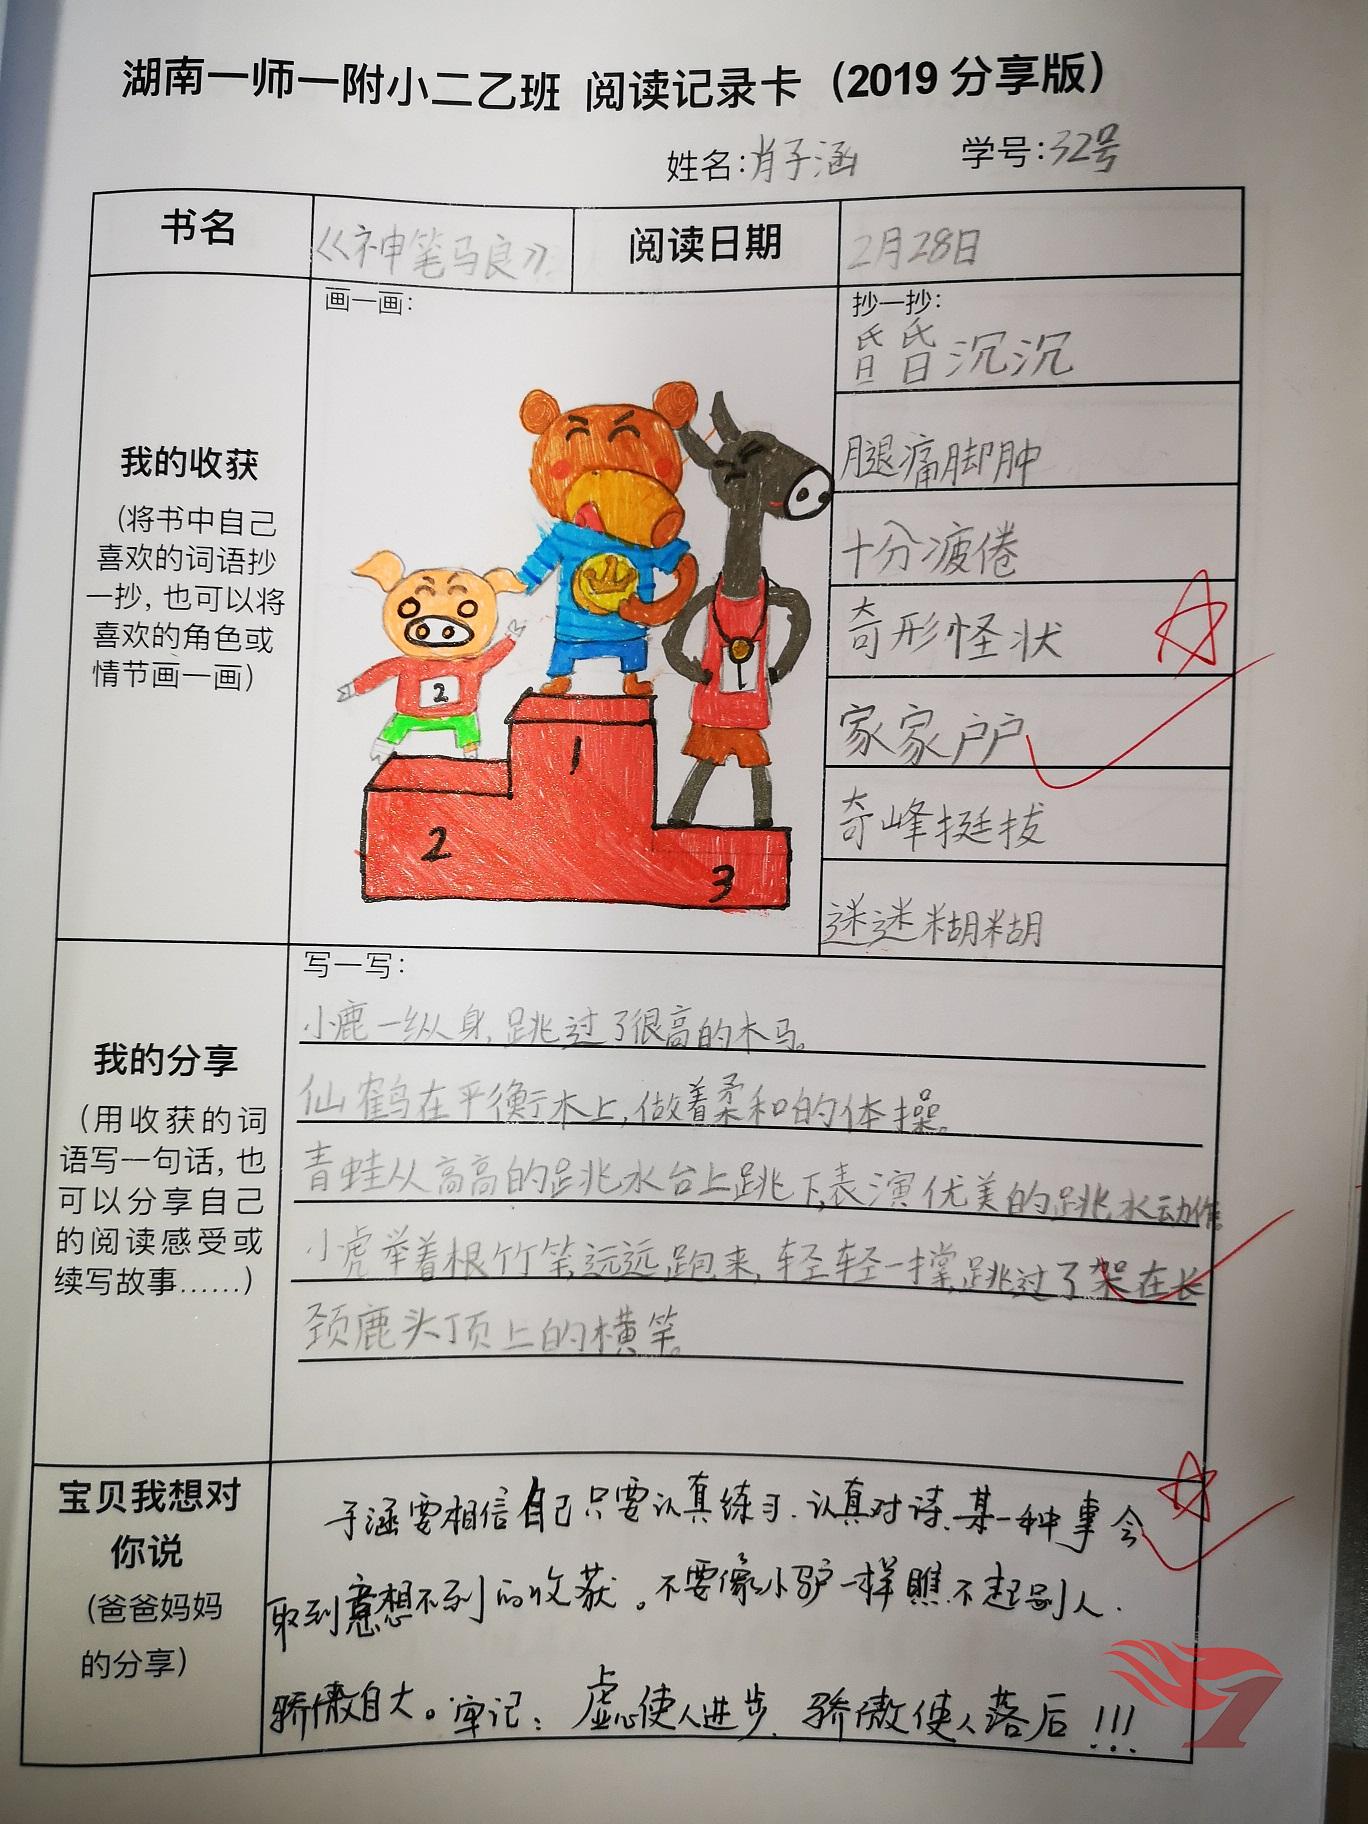 湖南一师一附小二乙班 阅读记录卡（2019 分享版）
姓名：肖子涵 学号：32号
书名 《神笔马良》 阅读日期 2月28日
画一画：
抄一抄：
昏昏沉沉
腿痛脚肿
十分疲倦
奇形怪状
家家户户
奇峰挺拔
迷迷糊糊
我的收获
（将书中自己
喜欢的词语抄
一抄，也可以将
喜欢的角色或
情节画一画）
2
1
1
2
3
我的分享
（用收获的词
语写一句话，也
可以分享自己
的阅读感受或
续写故事……）
写一写：
小鹿一纵身，跳过了很高的木马。
仙鹤在平衡木上，做着柔和的体操。
青蛙从高高的跳水台上跳下，表演优美的跳水动作
小虎举着根竹竿，远远跑来，轻轻一撑，跳过了架在长
颈鹿头顶上的横竿。
宝贝我想对
你说
（爸爸妈妈
的分享）
子涵要相信自己只要认真练习．认真对待．某一种事会
取到意想不到的收获。不要像小驴一样瞧不起别人．
骄傲自大。牢记：虚心使人进步．骄傲使人落后！！！
1